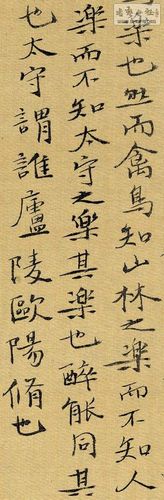 樂也然而禽鳥知山林之樂而不知人
樂而不知太守之樂其樂也醉能同其
也太守謂誰廬陵歐陽脩也